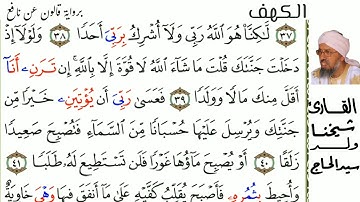 الكهف
برواية قالون عن نافع
٣٧ لَّٰكِنَّا هُوَ اَ۬للَّهُ رَبِّي وَلَآ أُشْرِكُ بِرَبِّيَ أَحَداٗ ٣٨ وَلَوْلَآ إِذْ
دَخَلْتَ جَنَّتَكَ قُلْتَ مَا شَآءَ اَ۬للَّهُ لَا قُوَّةَ إِلَّا بِاللَّهِۖ إِن تَرَنِۦ أَنَآ
أَقَلَّ مِنكَ مَالاٗ وَوَلَداٗ ٣٩ فَعَسَىٰ رَبِّيَ أَنْ يُؤْتِيَنِۦ خَيْراٗ مِّن
جَنَّتِكَ وَيُرْسِلَ عَلَيْهَا حُسْبَاناٗ مِّنَ اَ۬لسَّمَآءِ فَتُصْبِحَ صَعِيداٗ
زَلَقاً ٤٠ أَوْ يُصْبِحَ مَآؤُهَا غَوْراٗ فَلَن تَسْتَطِيعَ لَهُۥ طَلَباٗ ٤١
وَأُحِيطَ بِثُمُرِهِۦ فَأَصْبَحَ يُقَلِّبُ كَفَّيْهِ عَلَىٰ مَآ أَنفَقَ فِيهَا وَهْيَ خَاوِيَةٌ
القارئ
شيخنا
ولد
سيد الحاج